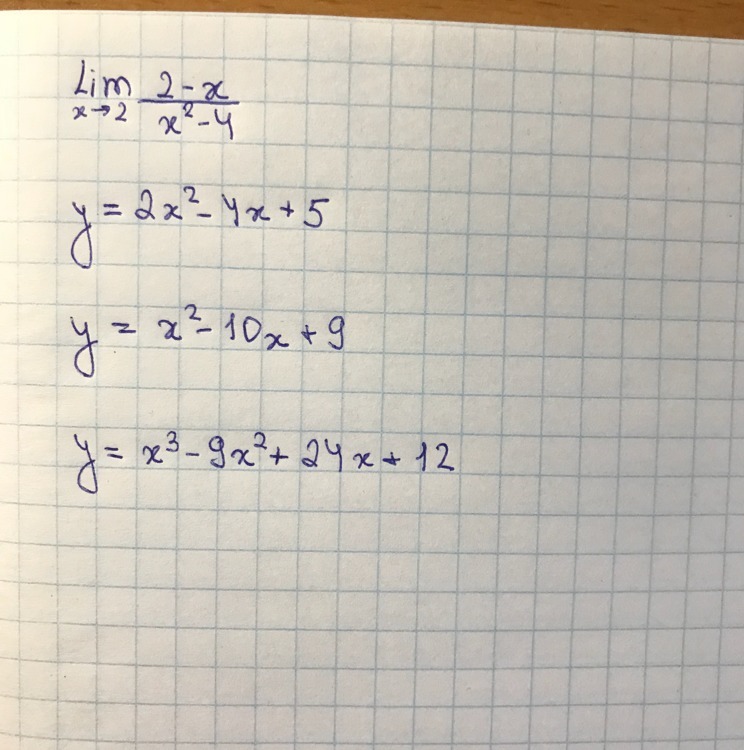 Lim 2-x
x→2 x²-4
y = 2x² - 4x + 5
y = x² - 10x + 9
y = x³ - 9x² + 24x + 12